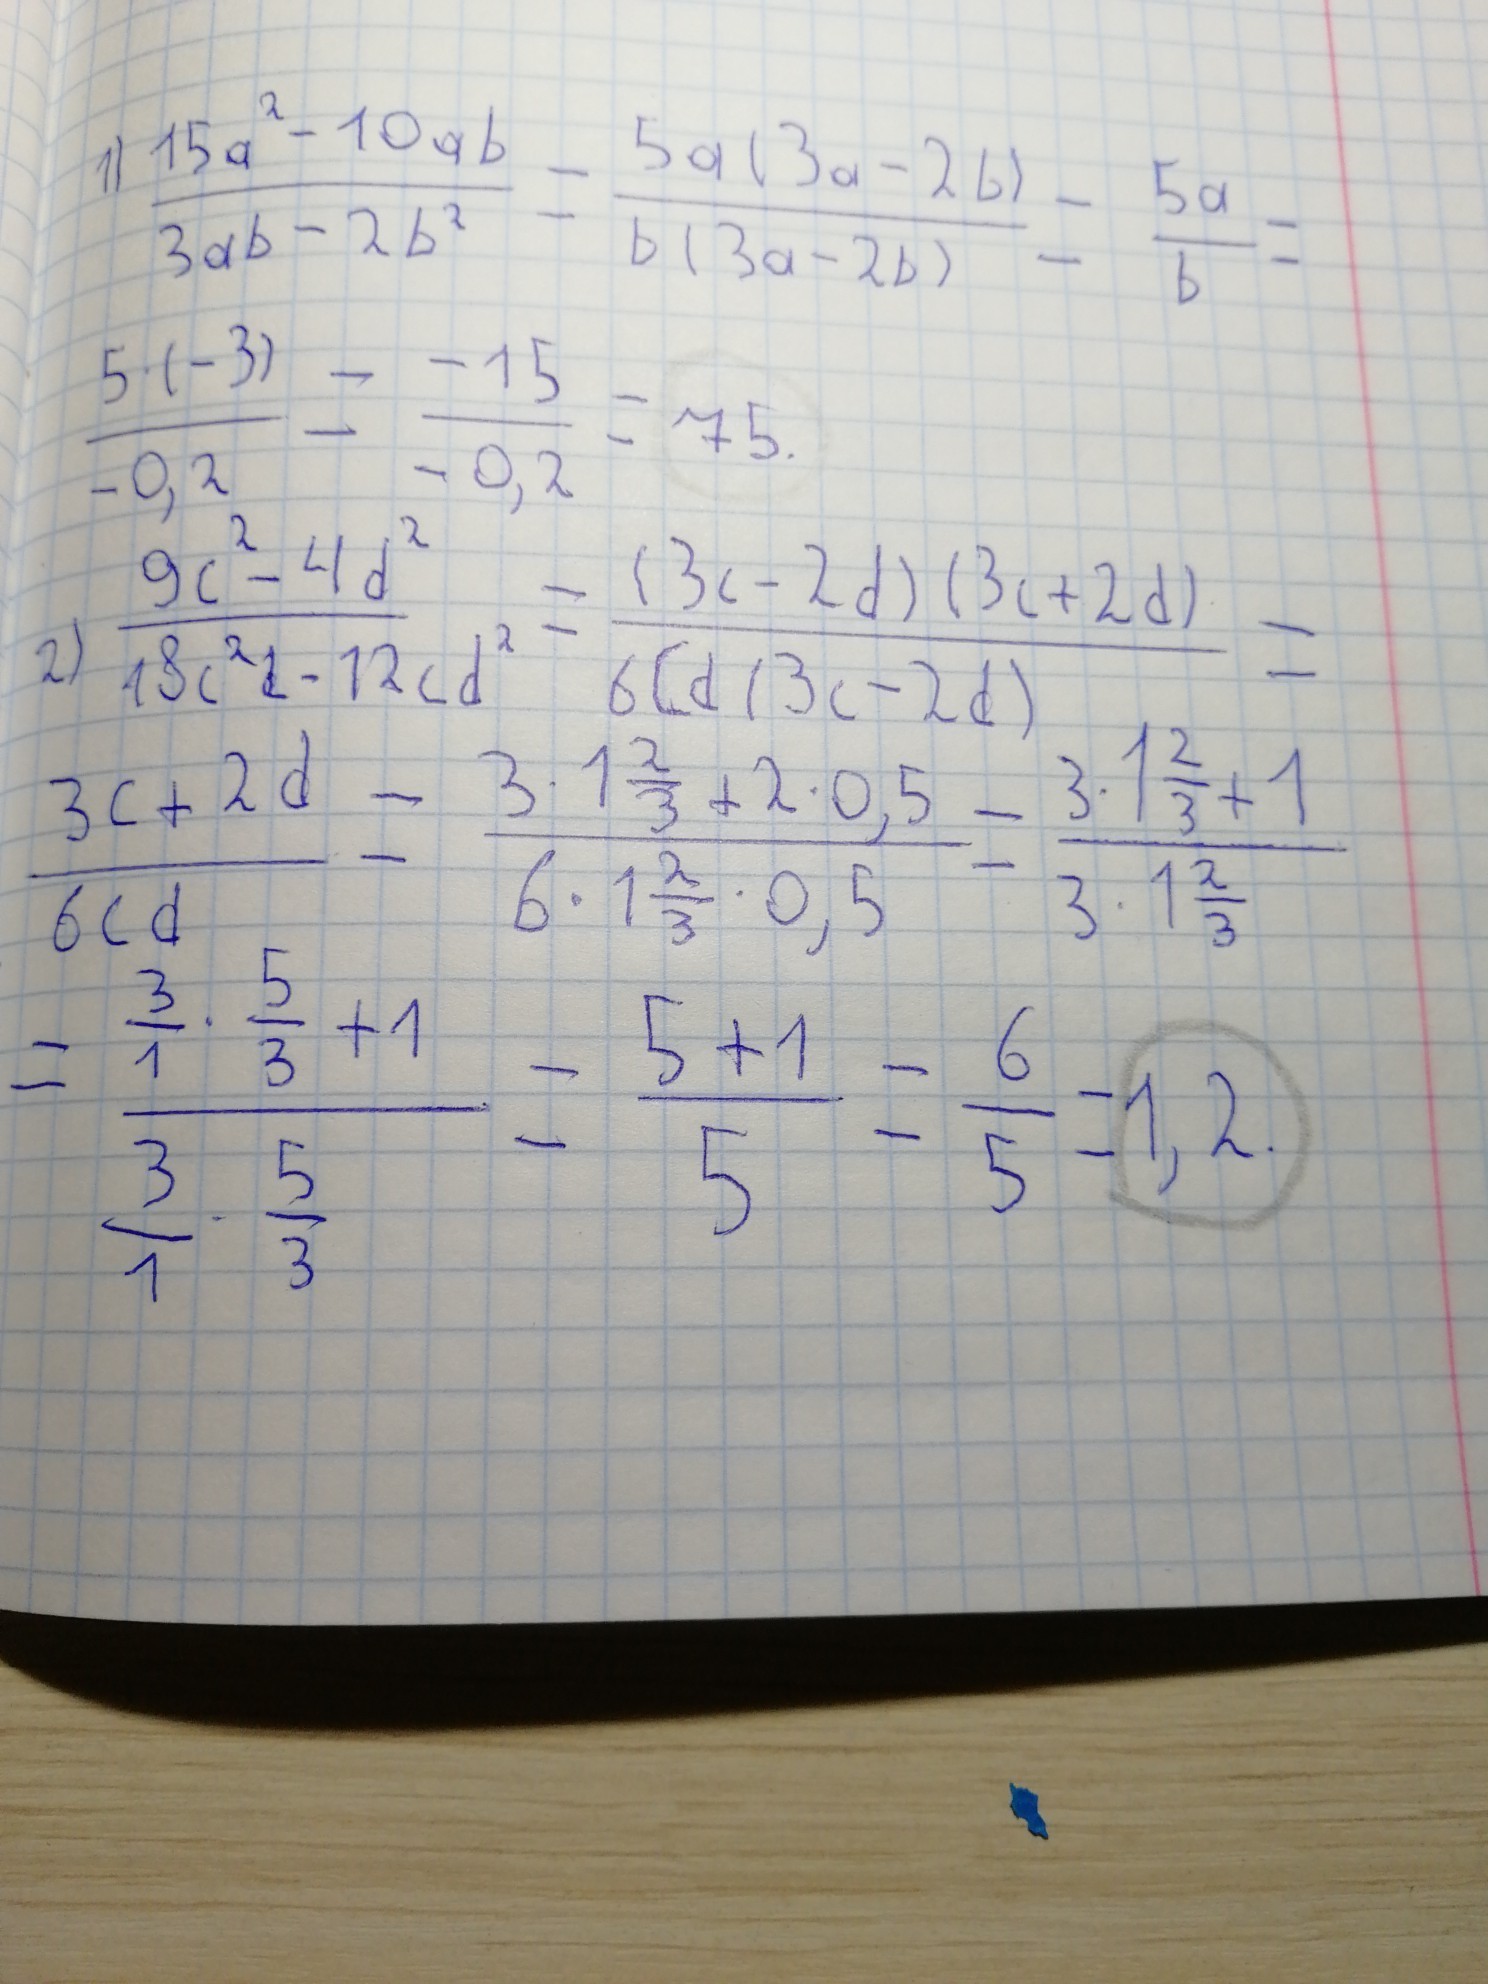 1) (15a² - 10ab)/(3ab - 2b²) = (5a(3a - 2b))/(b(3a - 2b)) = 5a/b =
(5·(-3))/(-0,2) = (-15)/(-0,2) = 75.
2) (9c² - 4d²)/(18c²d - 12cd²) = ((3c - 2d)(3c + 2d))/(6cd(3c - 2d)) =
(3c + 2d)/(6cd) = (3·1 2/3 + 2·0,5)/(6·1 2/3·0,5) = (3·1 2/3 + 1)/(3·1 2/3)
= (3/1 · 5/3 + 1)/(3/1 · 5/3) = (5 + 1)/5 = 6/5 = 1,2.